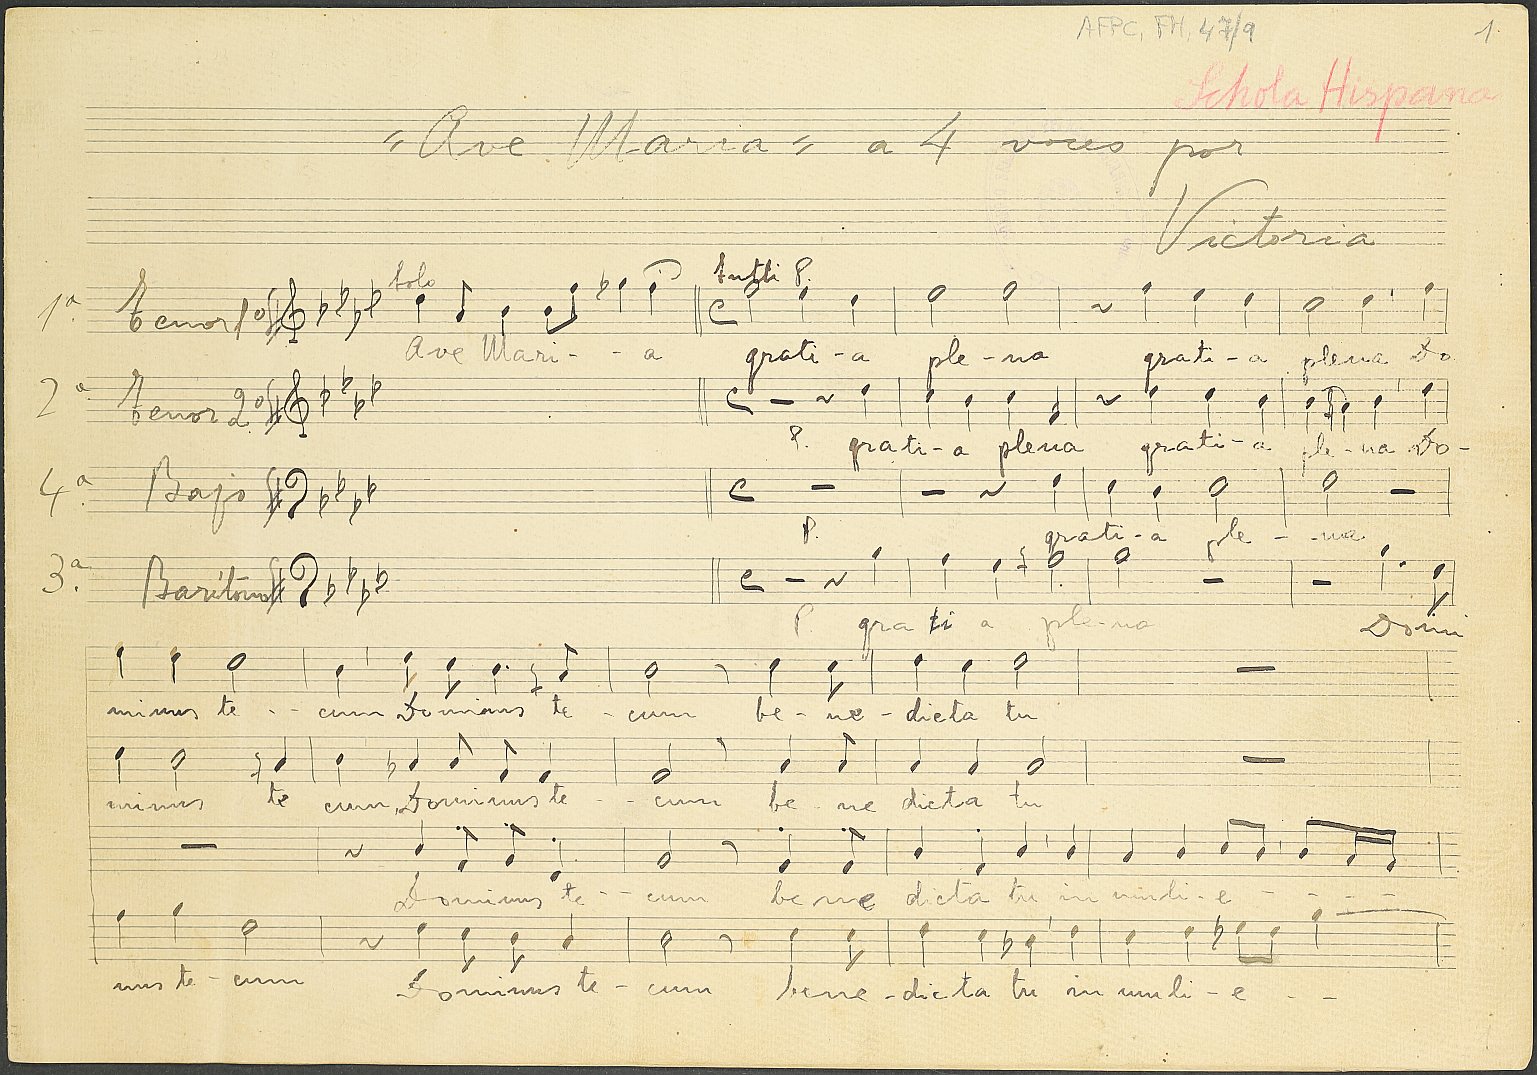 AFPC, FH, 47/9 1.
Schola Hispana
"Ave Maria" a 4 voces por
Victoria
solo tutti P.
1ª. Tenor 1º
Ave Mari - - a grati - a ple - na grati - a plena Do
2ª. Tenor 2º
P. grati - a plena grati - a ple - na Do -
4ª. Bajo
P. grati - a ple - - na
3ª. Barítono
P. grati a ple - na Domi
minus te - - cum Dominus te - cum be - ne - dicta tu
minus te cum, Dominus te - - cum be - ne dicta tu
Dominus te - - cum be ne dicta tu in muli - e - - - -
nus te - cum Dominus te - cum bene - dicta tu in muli - e - -